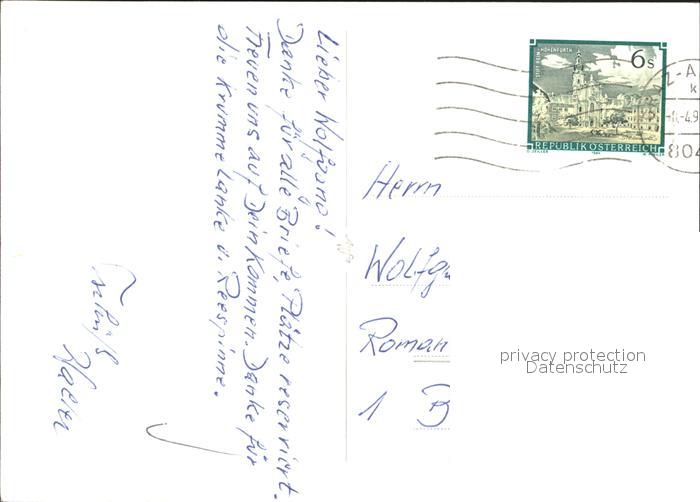 Lieber Wolfgang!
Danke für alle Briefe, Plätze reserviert.
Freuen uns auf Dein Kommen. Danke für
die Krumme Lanke u. Reespinne.
Tschüß
STIFT REIN - HOHENFURTH
6 S
REPUBLIK ÖSTERREICH
804
Herrn
Wolfg
Roman
1 B
privacy protection
Datenschutz